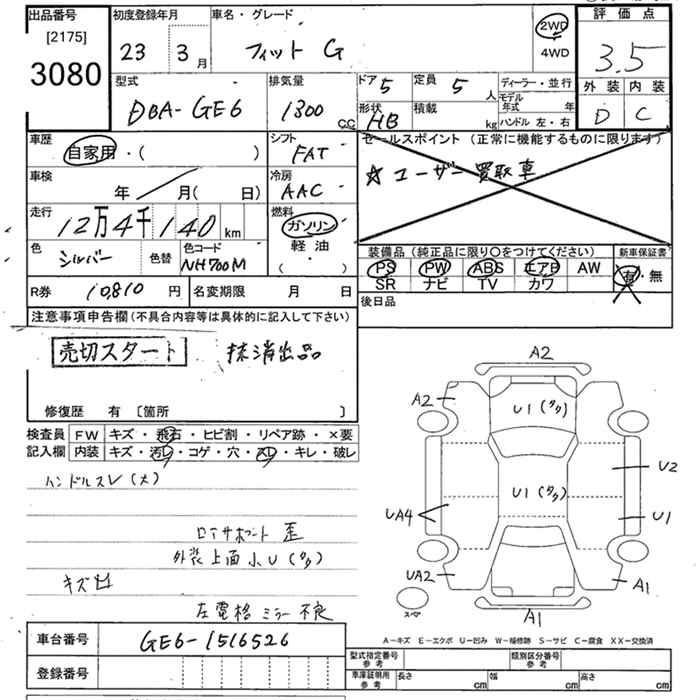 出品番号
[2175]
3080
初度登録年月
23 3月
車名・グレード
フィット G
2WD
4WD
評価点
3.5
外装 内装
D C
型式
DBA-GE6
排気量
1300 CC
ドア 5
定員 5人
形状 HB
積載 kg
ディーラー・並行
モデル年式 年
ハンドル 左・右
車歴
自家用・( )
シフト
FAT
セールスポイント (正常に機能するものに限ります)
☆ユーザー買取車
車検
年 月(日)
冷房
AAC
走行
12万4千140km
燃料
ガソリン
軽油
( ・ )
色
シルバー
色替
色コード
NH700M
装備品 (純正品に限り〇をつけてください)
新車保証書
PS PW ABS エアB AW
SR ナビ TV カワ
有・無
R券 10810円
名変期限 月 日
後日品
注意事項申告欄 (不具合内容等は具体的に記入して下さい)
売切スタート 抹消出品
修復歴 有 [箇所 ]
検査員
記入欄
FW キズ・飛石・ヒビ割・リペア跡・×要
内装 キズ・汚レ・コゲ・穴・スレ・キレ・破レ
ハンドルスレ(大)
ロアサポート 歪
外装上面小U(多少)
左電格ミラー不良
A2
A2
U1
U1
U2
U1
UA4
UA2
A1
A1
スペア
A-キズ E-エクボ U-凹み W-補修跡 S-サビ C-腐食 XX-交換済
車台番号 GE6-1516526
登録番号
型式指定番号
参考
類別区分番号
参考
車庫証明用
参考
長さ cm
幅 cm
高さ cm